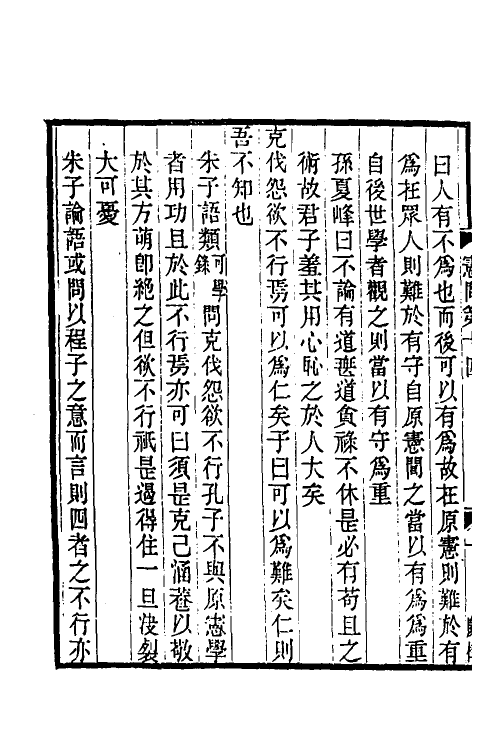 曰人有不爲也而後可以有爲故在原憲則難於有
爲在眾人則難於有守自原憲聞之當以有爲爲重
自後世學者觀之則當以有守爲重
孫夏峰曰不論有道無道食祿不休是必有苟且之
術故君子羞其用心恥之於人大矣
克伐怨欲不行焉可以爲仁矣子曰可以爲難矣仁則
吾不知也
朱子語類可學錄問克伐怨欲不行孔子不與原憲學
者用功且於此不行焉亦可曰須是克己涵養以敬
於其方萌卽絕之但欲不行祇是遏得住一旦決裂
大可憂
朱子論語或問以程子之意而言則四者之不行亦